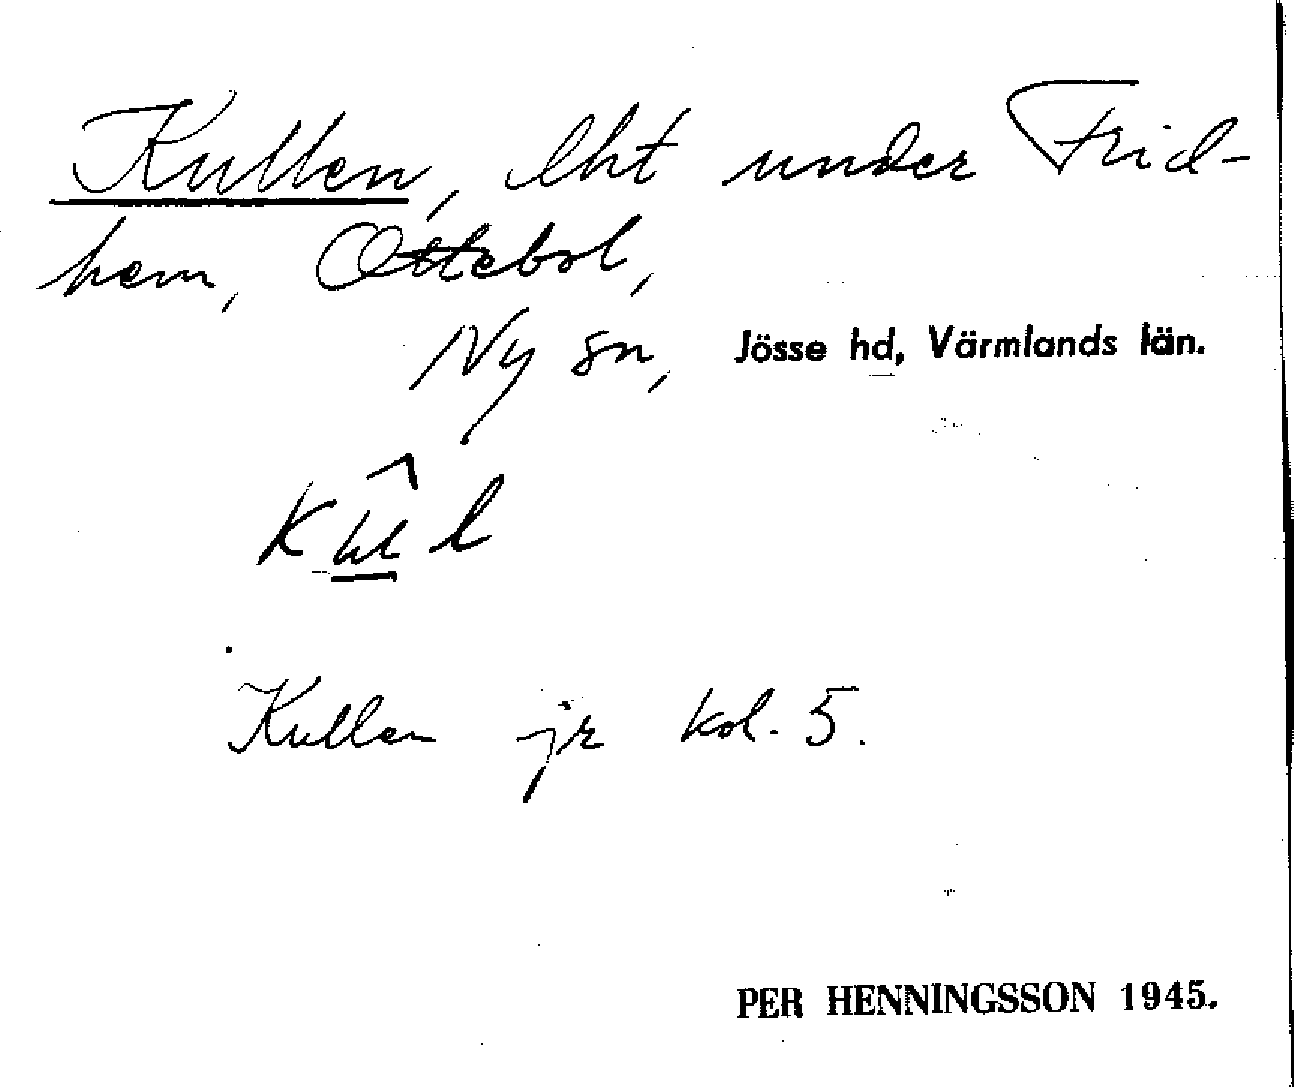 Kullen, lht under Frid-
hem, Ottebol,
Ny sn, Jösse hd, Värmlands län.
Kullen jr kol. 5.
PER HENNINGSSON 1945.